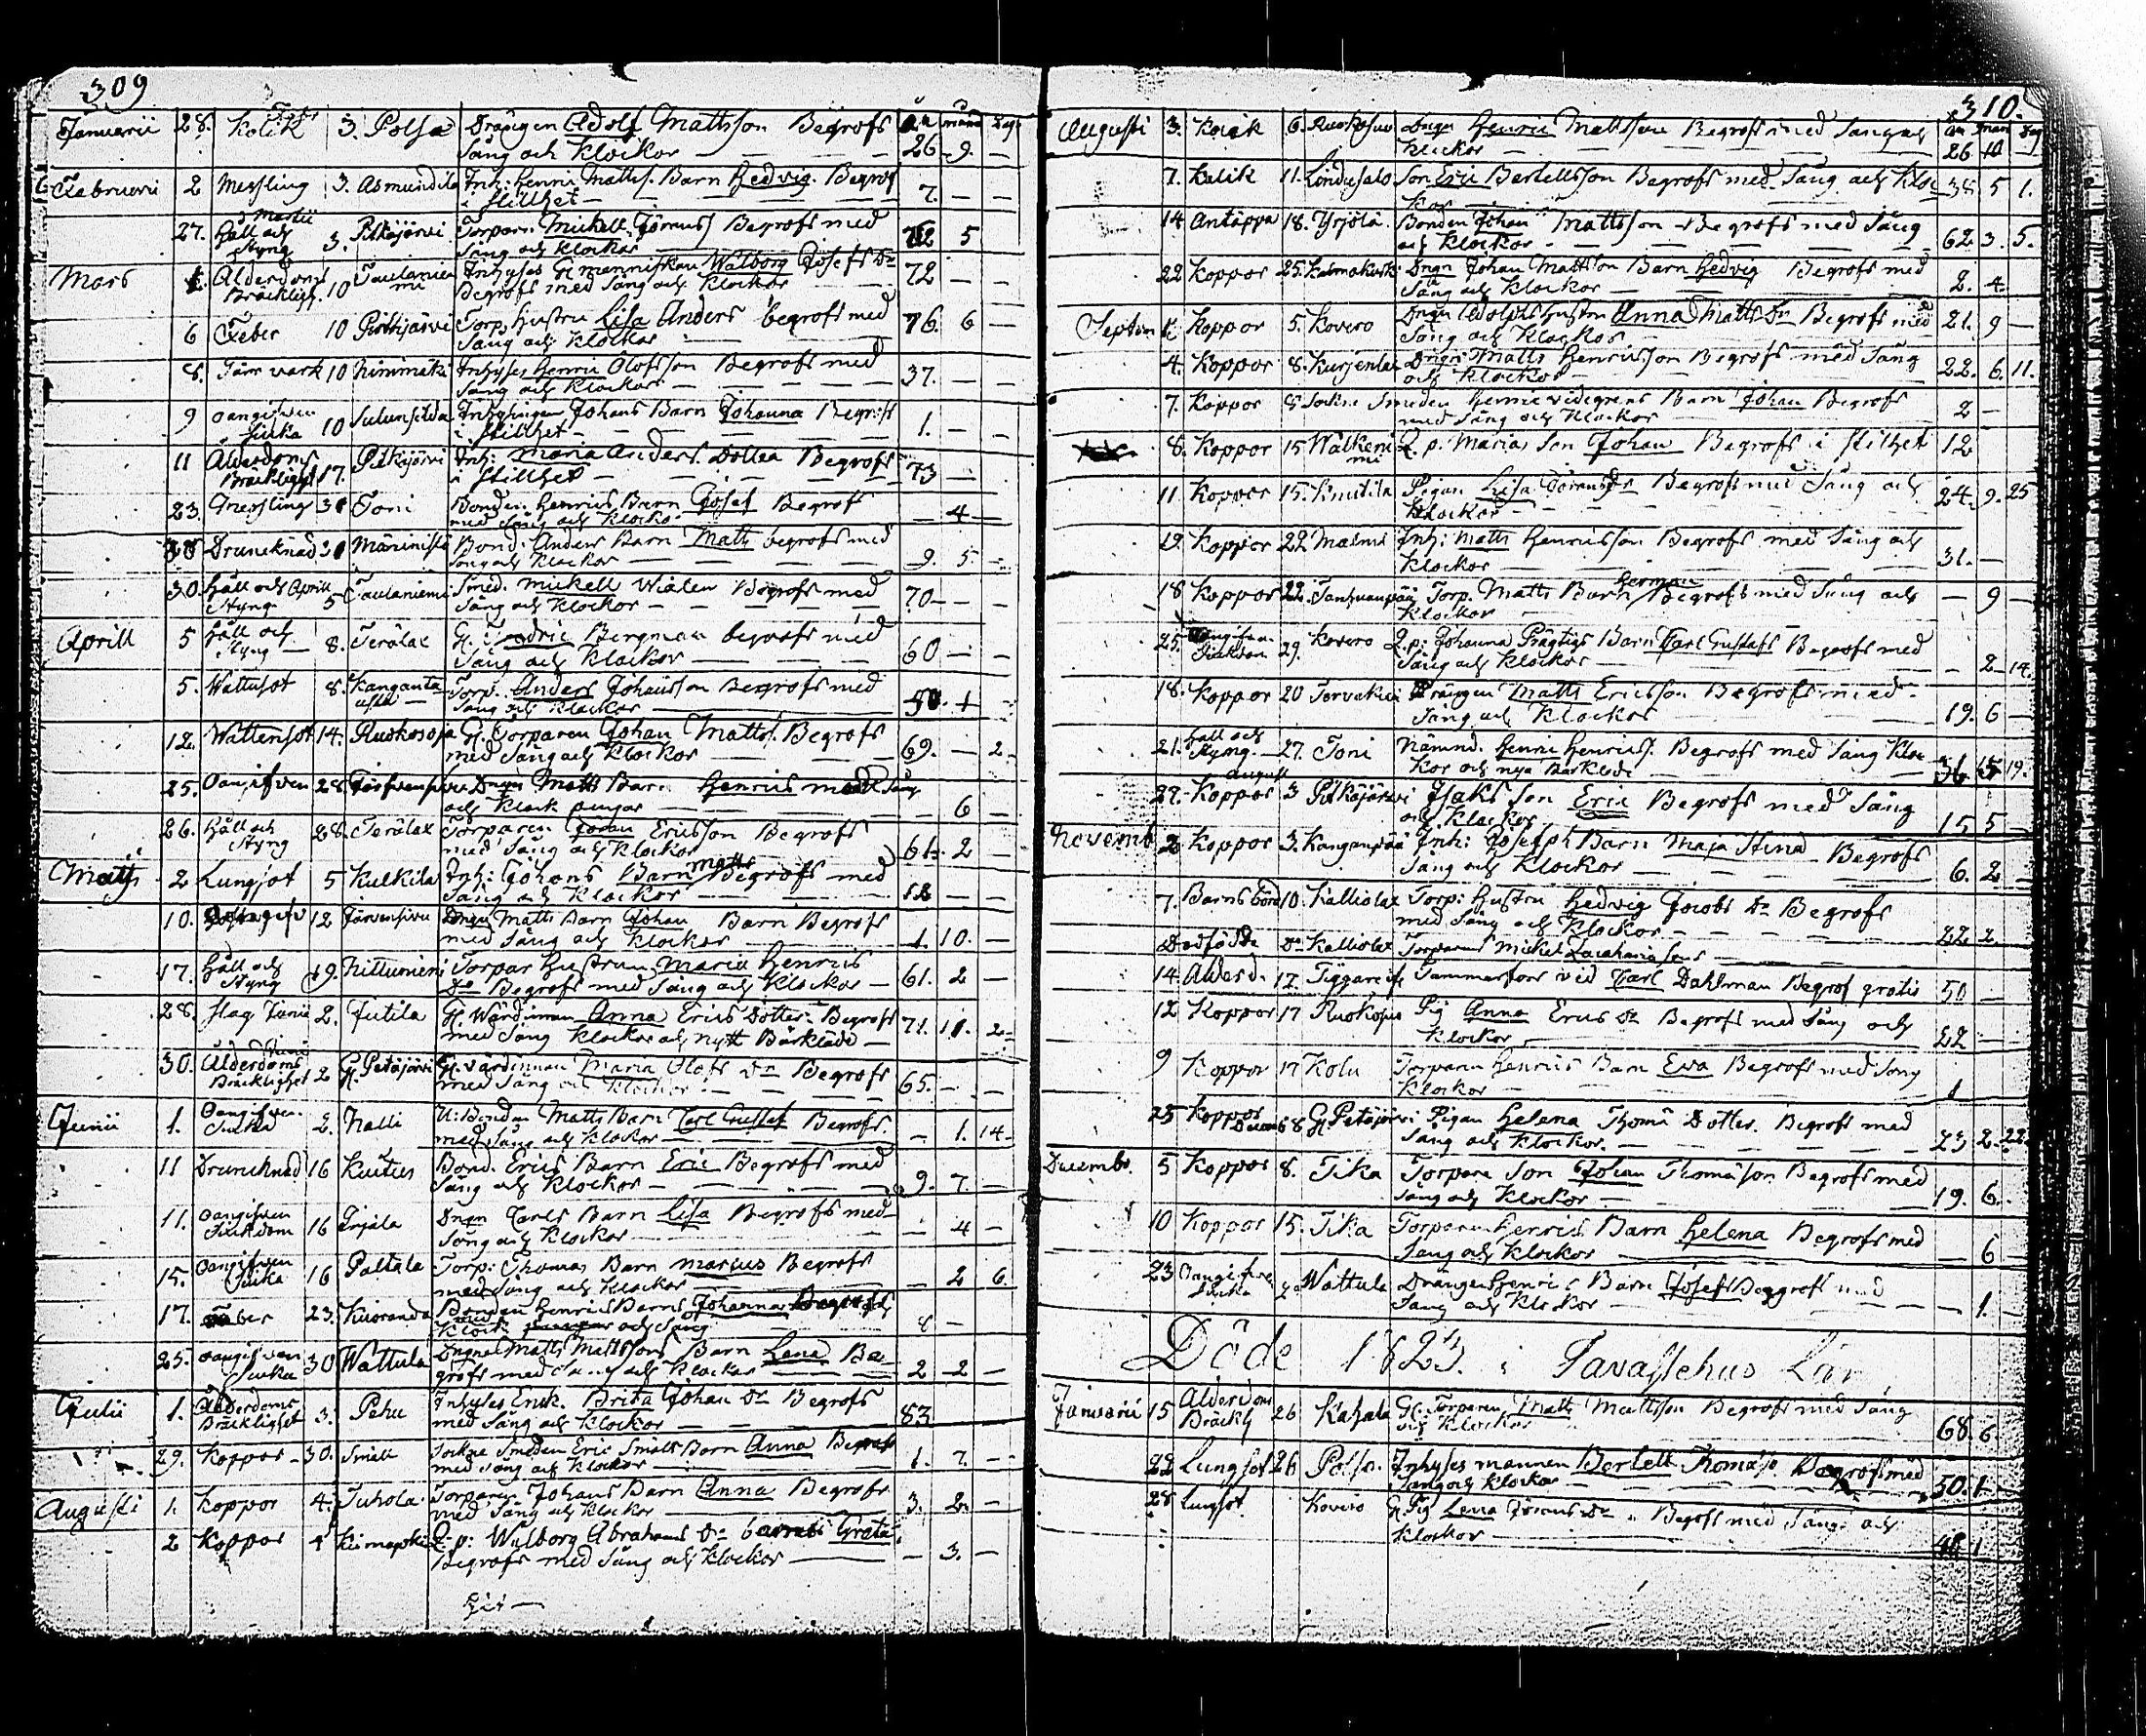 309
År månd Dag
Januarii 28. Kolik Febr 3. Polsa Drängen Adolf Mattsson Begrofs
Sång och Klockor — 26 9. —
Februarii 2 Messling 3. Asmundila Inh: Henric Matts. Barn Hedvig. Begrof
i stillhet — 7. — —
27. Håll och Styng Martii 3. Pitkäjärvi Torparn Mickell Görans Begrofs med
Sång och Klockor — 72 5
Mars Ålderdoms Bräckligh. 10 Taulaniemi Inhyses Gl menniskan Walborg Josefs Dr
Begrofs med Sång och Klockor 72 — —
6 Feber 10 Pitkäjärvi Torp. Hustru Lisa Anders begrofs med
Sång och Klockor — 76. 6 —
8. Järrvark 10 Inhyses Henric Olofsson Begrofs med
Sång och Klockor — 37. — —
9 Oangifven Siuka 10 Inhysingen Johans Barn Johanna Begrofs
i stillhet — 1. — —
11 Ålderdoms Bräckligh 17. Pitkäjärvi Inh: Maria Anders Dotter Begrofs
i stillhet — 73 —
23. Messling 31 Toni Bonden Henrics Barn Josef Begrof
med Sång och Klockor — 4 —
Druncknad 31 Bond. Anders Barn Matts begrofs med
Sång och Klockor — 9. 5. —
30. Håll och Styng Aprill 5 Taulaniemi Smed. Mickell Wialen Begrofs med
Sång och Klockor — 70 — —
Aprill 5 Håll och Styng 8. Terälax Gl. Fredric Bergman begrofs med
Sång och Klockor — 60 — —
5. Wattusot 8. Torp. Anders Johansson Begrofs med
Sång och Klockor — 1 —
12. Wattensot 14. Ruokosoja Gl. Torparen Johan Matts. Begrofs
med Sång och Klockor 69. — 2.
25. Oangifven 28. Dngn Matts Barn Henrics med Sång
och Klock pengar — 6
26. Håll och Styng 28. Terälax Torparen Göran Ericsson Begrofs
med Sång och Klockor 61. 2 —
Maij 2 Lungsot 5 Kulkila Inh: Johans Barn Matts Begrofs med
Sång och Klockor — —
10. 12 Järvensivu Dngn Matts Barn Johan Barn Begrofs
med Sång och Klockor — 1. 10. —
17. Håll och Styng 19. Torpar Hustrun Maria Henrics
Dr Begrofs med Sång och Klockor — 61. 2 —
28. Slag Junii 2. Jutila Gl Wärdinnan Anna Erics Dotter Begrofs
med Sång Klockor och nytt Bårkläde — 71. 11. 2.
30. Ålderdoms Bräcklighet Junii 2 Gl. Petäjärvi Gl. värdinnan Maria Olofs Dr Begrofs
med Sång och Klockor 65. —
Junii 1. Oangifven Siuka 2. Nalli U: Bonden Matts Barn Carl Gustaf Begrofs
med Sång och Klockor — 1. 14.
11 Druncknad 16 Bond. Erics Barn Eric Begrofs med
Sång och Klockor — 9. 7. —
11. Oangifven Siukdom 16 Yrjälä Dngn Carls Barn Lisa Begrofs med
Sång och Klockor — 4 —
15. Oangifven Siuka 16 Paltala Torp. Thomas Barn Marcus Begrofs
med Sång och Klockor — 2 6.
17. Feber 23. Bonden Henrics Barns Johanna Begrofs
Klock och Sång 8 —
25. Oangifven Siuka 30 Wattula Dngns Matts Mattsons Barn Lena Be-
grofs med Sång och Klockor 2 2 —
Julii 1. Ålderdoms Bräcklighet 3. Pehu Inhyses Enk. Brita Johan Dr Begrofs
med Sång och Klockor — 83
29. Koppor 30. Smält Sockne Smeden Eric Smälts Barn Anna Begrofs
med Sång och Klockor — 1. 7. —
Augusti 1. Koppor 4. Juhola Torparen Johans Barn Anna Begrofs
med Sång och Klockor — 3. 2. —
2 Koppor 4 Q. p: Walborg Abrahams Dr barn Greta
Begrofs med Sång och Klockor — 3. —
310.
År Mån Dag
Augusti 3. Kolik 6. Dngn Henric Mattsson Begrofs med Sång och
Klockor — 26 10 —
7. Kolik 11. Lindusalo Son Eric Bertellsson Begrofs med Sång och Kloc
kor — 38 5 1.
14 Antäppa 18. Yrjölä Bonden Johan Mattsson Begrofs med Sång
och Klockor — 62. 3. 5.
22 Koppor 25. Dngn Johan Mattson Barn Hedvig Begrofs med
Sång och Klockor — 2. 4.
Septem Koppor 5. Kovero Dngn Adolphs Hustru Anna Matts Dr Begrofs med
Sång och Klockor — 21. 9 —
4. Koppor 8. Dngn Matts Henricsson Begrofs med Sång
och Klockor — 22. 6. 11.
7. Koppor 8 Sockne Smeden Henric Videgrens Barn Johan Begrofs
med Sång och Klockor — 2 —
8. Koppor 15 Q. p: Marias Son Johan Begrofs i stillhet 12
11. Koppor 15. Pigan Lisa Görans Dr Begrofs med Sång och
Klockor — 24. 9. 25
19. Koppor 22 Inh: Matts Henricsson Begrofs med Sång och
Klockor — 31. —
18 Koppor 22. Torp. Matts Barn Herman Begrofs med Sång och
Klockor — 9 —
25. Oangifven Siukdom 29. Kovero Q. p: Johanna Prägtigs Barn Carl Gustafs Begrofs med
Sång och Klockor — 2 14.
18. Koppor 20 Drängen Matts Ericsson Begrofs med
Sång och Klockor — 19. 6 —
21. Håll och Styng 27. Toni Nämnd. Henric Henrics. Begrofs med Sång Kloc
kor och nya Bårkläde 36 19.
29. Koppor August 3 Pitkäjärvi Isaks Son Eric Begrofs med Sång
och Klockor 15 5 —
Novemb 2 Koppor 3. Kanganpää Inh: Josephs Barn Maja Stina Begrofs
Sång och Klockor — 6. 2 —
7. Barns börd 10. Kalliolax Torp: Hustru Hedvig Jacobs Dr Begrofs
med Sång och Klockor — 22. 2
Dödfödde Do Kalliolax Torparens Mickel Zacharias Son
14. Ålderd. 17. Tiggare Tammerfors vid Carl Dahlman Begrof gratis 50 —
12 Koppor 17 Pig Anna Erics Dr Begrofs med Sång och
Klockor — 22 —
9 Koppor 17 Kolu Torparen Henrics Barn Eva Begrofs med Sång
Klockor — 1
25 Koppor Decem 8 Gl Petäjärvi Pigan Helena Thoma Dotter. Begrofs med
Sång och Klockor. — 23 2. 22
Decemb. 5 Koppor 8. Tika Torpare Son Johan Thomasson Begrofs med
Sång och Klockor — 19. 6.
10 Koppor 15. Tika Torparen Henrics Barn Helena Begrofs med
Sång och Klockor — 6 —
23 Oangifven Siuka Wattula Drängen Henrics Barn Josef Begrofs med
Sång och Klockor — 1. —
Döde 1823. i Tavastehus Län
Januarii 15 Ålderdoms Bräckl 26 Gl. Torparen Matts Mattsson Begrofs med Sång
och Klockor 68. 6.
22 Lungsot 26 Polsa Inhyses mannen Bertell Thomass Begrofs med
Sång och Klockor — 50. 1 —
28 Lungsot Kovero Gl Pig Lena Görans Dr Begrofs med Sång och
Klockor — 1